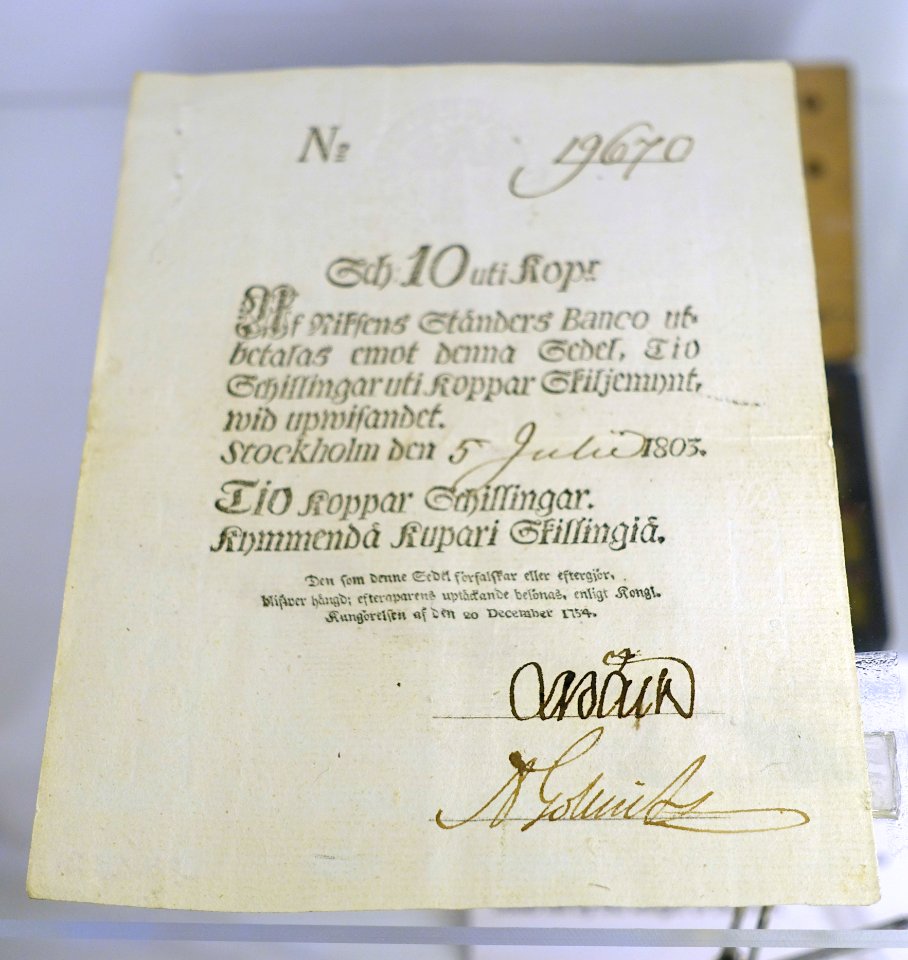 Nº 19670
Sch: 10 uti Kopr
Af Riksens Ständers Banco ut-
betalas emot denna Sedel, Tio
Schillingar uti Koppar Skiljemynt,
wid upwisandet.
Stockholm den 5 Julii 1803.
Tio Koppar Schillingar.
Kymmendä Kupari Skillingiä.
Den som denne Sedel förfalskar eller eftergjör,
blifwer hängd; efteraparens uptäckande belönas, enligt Kongl.
Kungörelsen af den 20 December 1754.